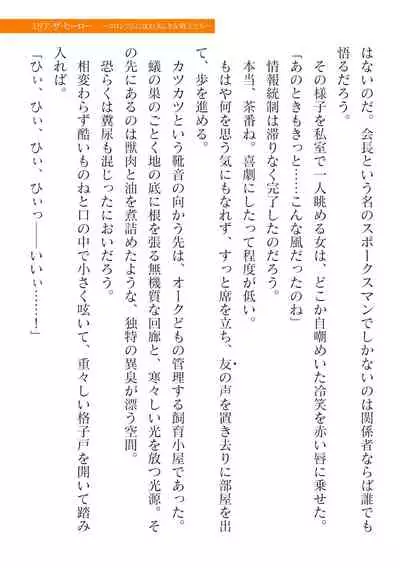 はないのだ。会長という名のスポークスマンでしかないのは関係者ならば誰でも
悟るだろう。
その様子を私室で一人眺める女は、どこか自嘲めいた冷笑を赤い唇に乗せた。
「あのときもきっと……こんな風だったのね」
情報統制は滞りなく完了したのだろう。
本当、茶番ね。喜劇にしたって程度が低い。
もはや何を思う気にもなれず、すっと席を立ち、友の声を置き去りに部屋を出
て、歩を進める。
カツカツという靴音の向かう先は、オークどもの管理する飼育小屋であった。
蟻の巣のごとく地の底に根を張る無機質な回廊と、寒々しい光を放つ光源。そ
の先にあるのは獣肉と油を煮詰めたような、独特の異臭が漂う空間。
きっと糞尿も混じったにおいだろう。
相変わらず酷いものねと口の中で小さく呟いて、重々しい格子戸を開いて踏み
入れば。
「ひぃ、ひぃ、ひぃ、ひぃっ――いいぃ……！」